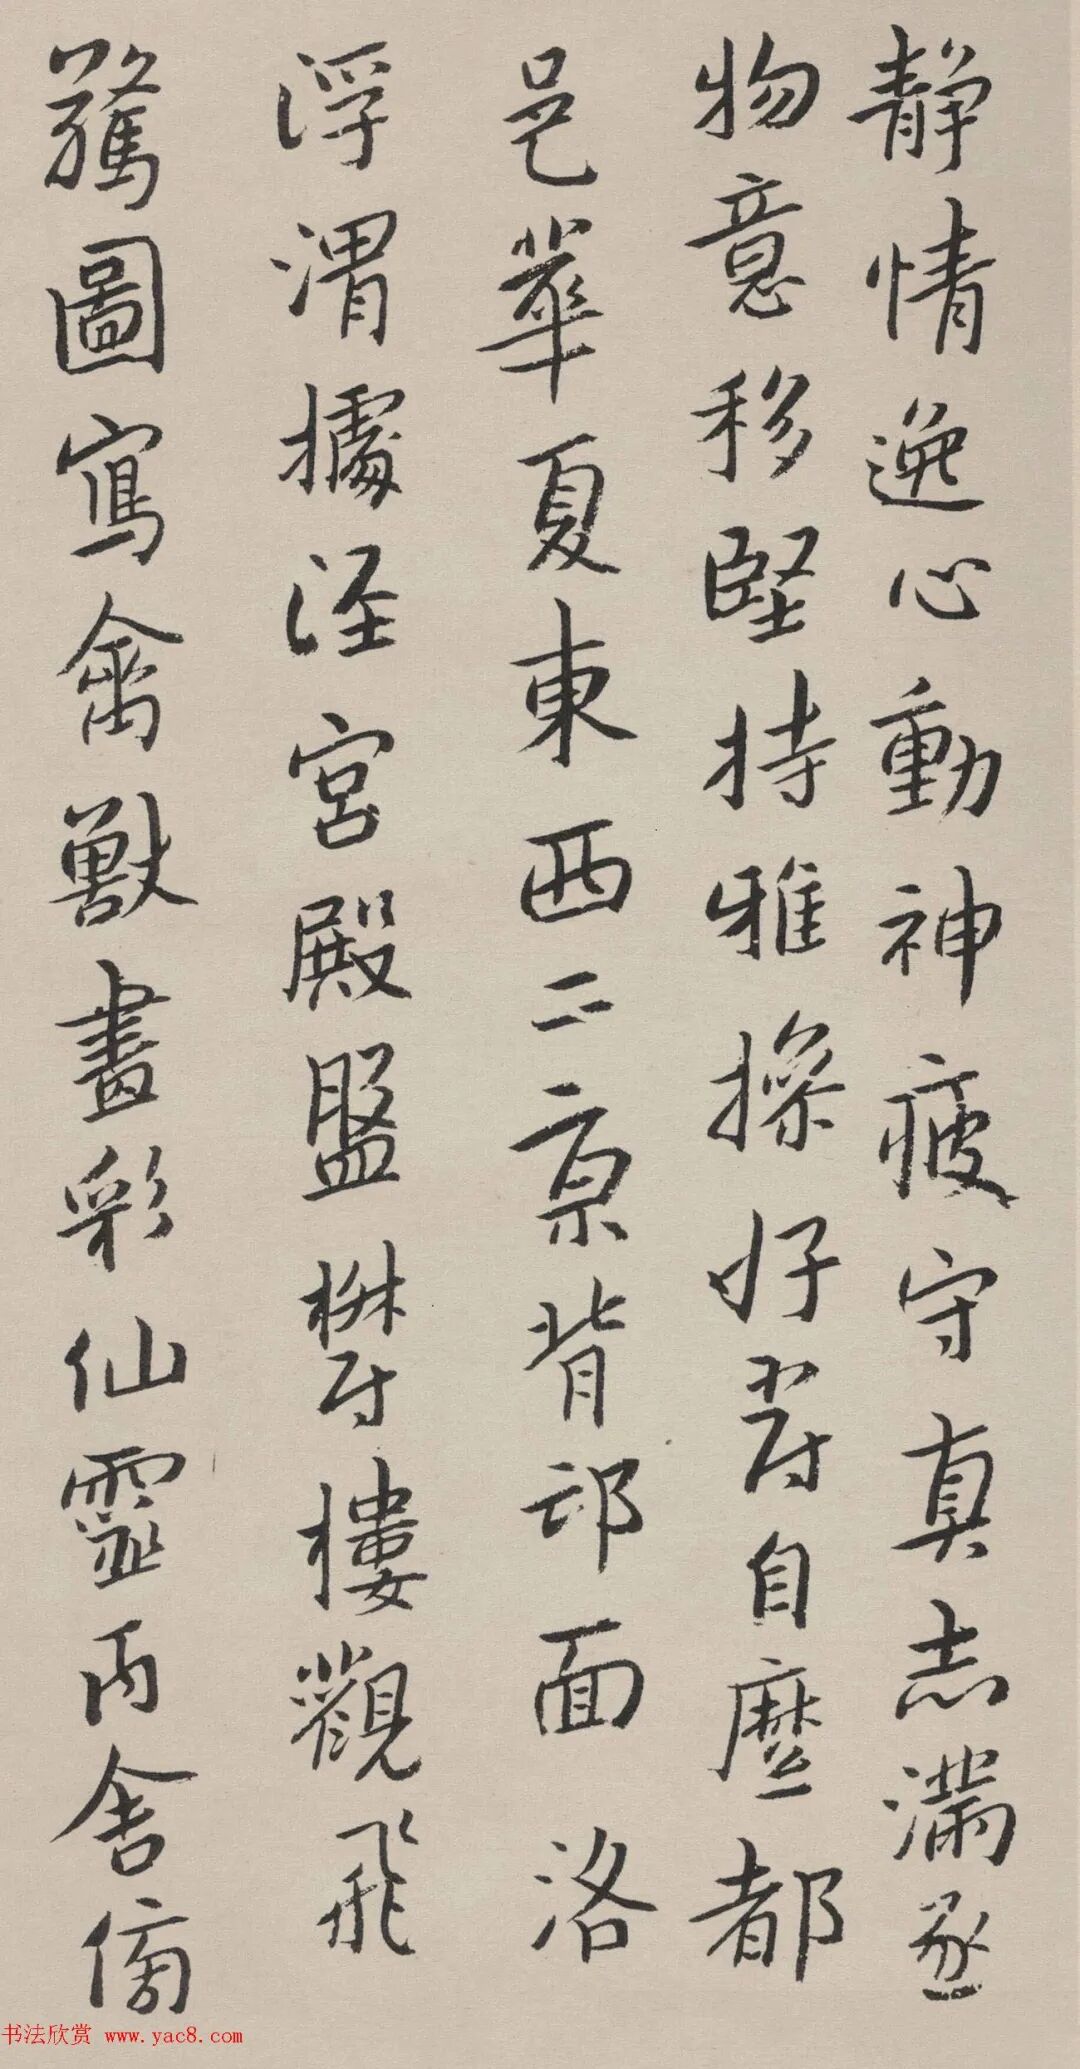 静情逸心動神疲守真志滿逐
物意移堅持雅操好爵自縻都
邑華夏東西二京背邙面洛
浮渭據涇宮殿盤欝樓觀飛
驚圖寫禽獸畫彩仙靈丙舍傍
书法欣赏 www.yac8.com